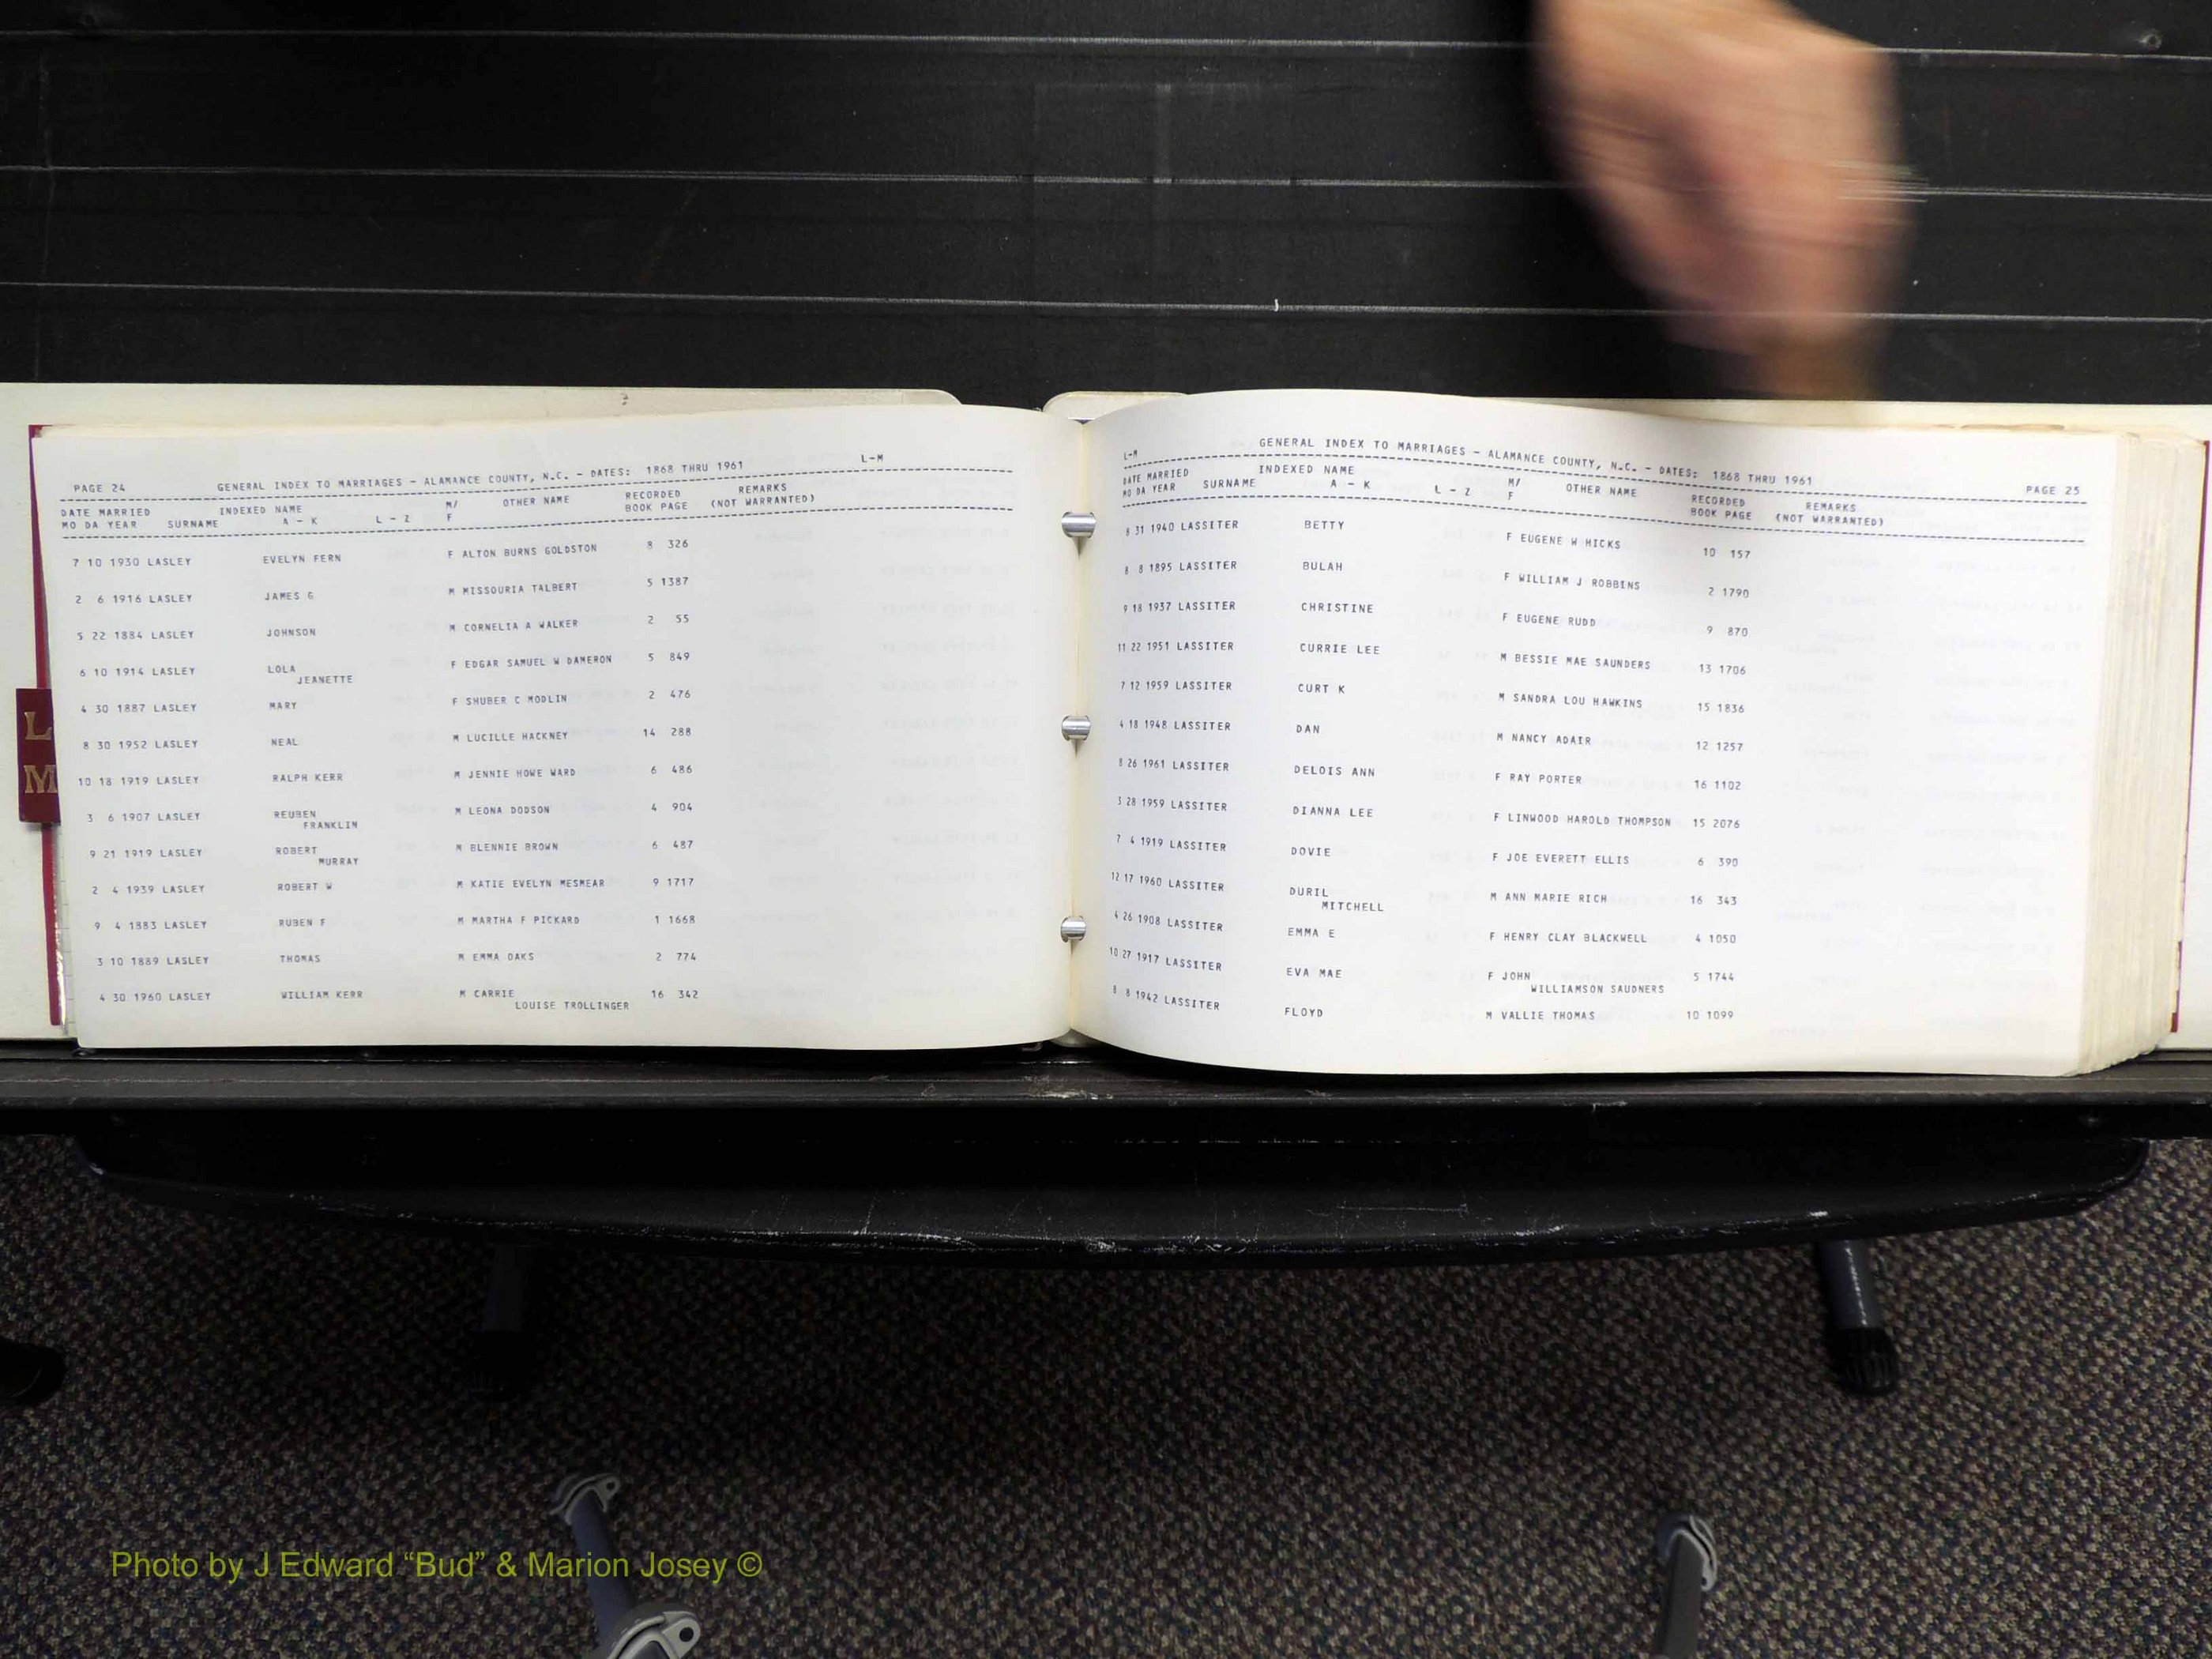 L
M
PAGE 24 GENERAL INDEX TO MARRIAGES - ALAMANCE COUNTY, N.C. - DATES: 1868 THRU 1961 L-M
DATE MARRIED INDEXED NAME M/ OTHER NAME RECORDED REMARKS
MO DA YEAR SURNAME A - K L - Z F BOOK PAGE (NOT WARRANTED)
7 10 1930 LASLEY EVELYN FERN F ALTON BURNS GOLDSTON 8 326
2 6 1916 LASLEY JAMES G M MISSOURIA TALBERT 5 1387
5 22 1884 LASLEY JOHNSON M CORNELIA A WALKER 2 55
6 10 1914 LASLEY LOLA F EDGAR SAMUEL W DAMERON 5 849
JEANETTE
4 30 1887 LASLEY MARY F SHUBER C MODLIN 2 476
8 30 1952 LASLEY NEAL M LUCILLE HACKNEY 14 288
10 18 1919 LASLEY RALPH KERR M JENNIE HOWE WARD 6 486
3 6 1907 LASLEY REUBEN M LEONA DODSON 4 904
FRANKLIN
9 21 1919 LASLEY ROBERT M BLENNIE BROWN 6 487
MURRAY
2 4 1939 LASLEY ROBERT W M KATIE EVELYN MESMEAR 9 1717
9 4 1883 LASLEY RUBEN F M MARTHA F PICKARD 1 1668
3 10 1889 LASLEY THOMAS M EMMA OAKS 2 774
4 30 1960 LASLEY WILLIAM KERR M CARRIE 16 342
LOUISE TROLLINGER
L-M GENERAL INDEX TO MARRIAGES - ALAMANCE COUNTY, N.C. - DATES: 1868 THRU 1961 PAGE 25
DATE MARRIED INDEXED NAME M/ OTHER NAME RECORDED REMARKS
MO DA YEAR SURNAME A - K L - Z F BOOK PAGE (NOT WARRANTED)
31 1940 LASSITER BETTY F EUGENE W HICKS 10 157
8 8 1895 LASSITER BULAH F WILLIAM J ROBBINS 2 1790
9 18 1937 LASSITER CHRISTINE F EUGENE RUDD 9 870
11 22 1951 LASSITER CURRIE LEE M BESSIE MAE SAUNDERS 13 1706
7 12 1959 LASSITER CURT K M SANDRA LOU HAWKINS 15 1836
4 18 1948 LASSITER DAN M NANCY ADAIR 12 1257
8 26 1961 LASSITER DELOIS ANN F RAY PORTER 16 1102
3 28 1959 LASSITER DIANNA LEE F LINWOOD HAROLD THOMPSON 15 2076
7 4 1919 LASSITER DOVIE F JOE EVERETT ELLIS 6 390
12 17 1960 LASSITER DURIL M ANN MARIE RICH 16 343
MITCHELL
4 26 1908 LASSITER EMMA E F HENRY CLAY BLACKWELL 4 1050
10 27 1917 LASSITER EVA MAE F JOHN 5 1744
WILLIAMSON SAUDNERS
8 8 1942 LASSITER FLOYD M VALLIE THOMAS 10 1099
Photo by J Edward “Bud” & Marion Josey ©